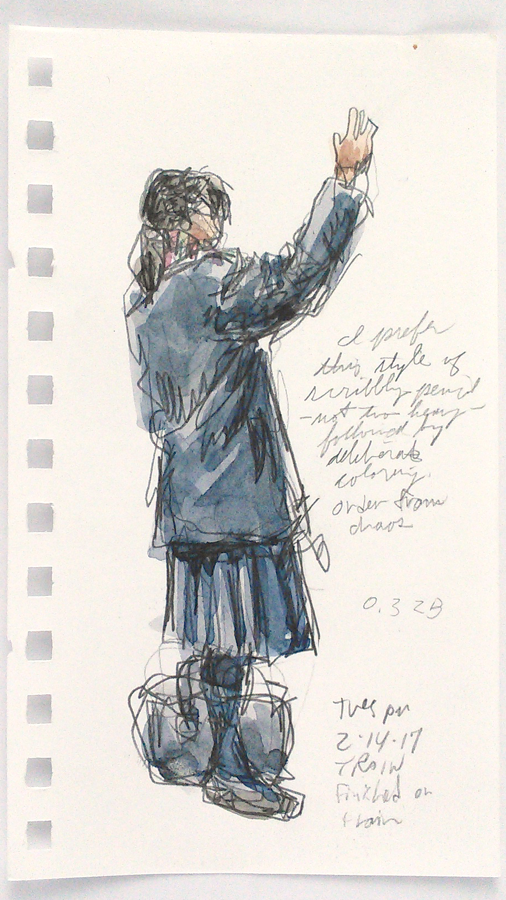 I prefer
this style of
scribbly pencil
-not too heavy-
followed by
deliberate
coloring.
order from
chaos
0.3 2B
Tues pm
2-14-17
TRAIN
Finished on
train